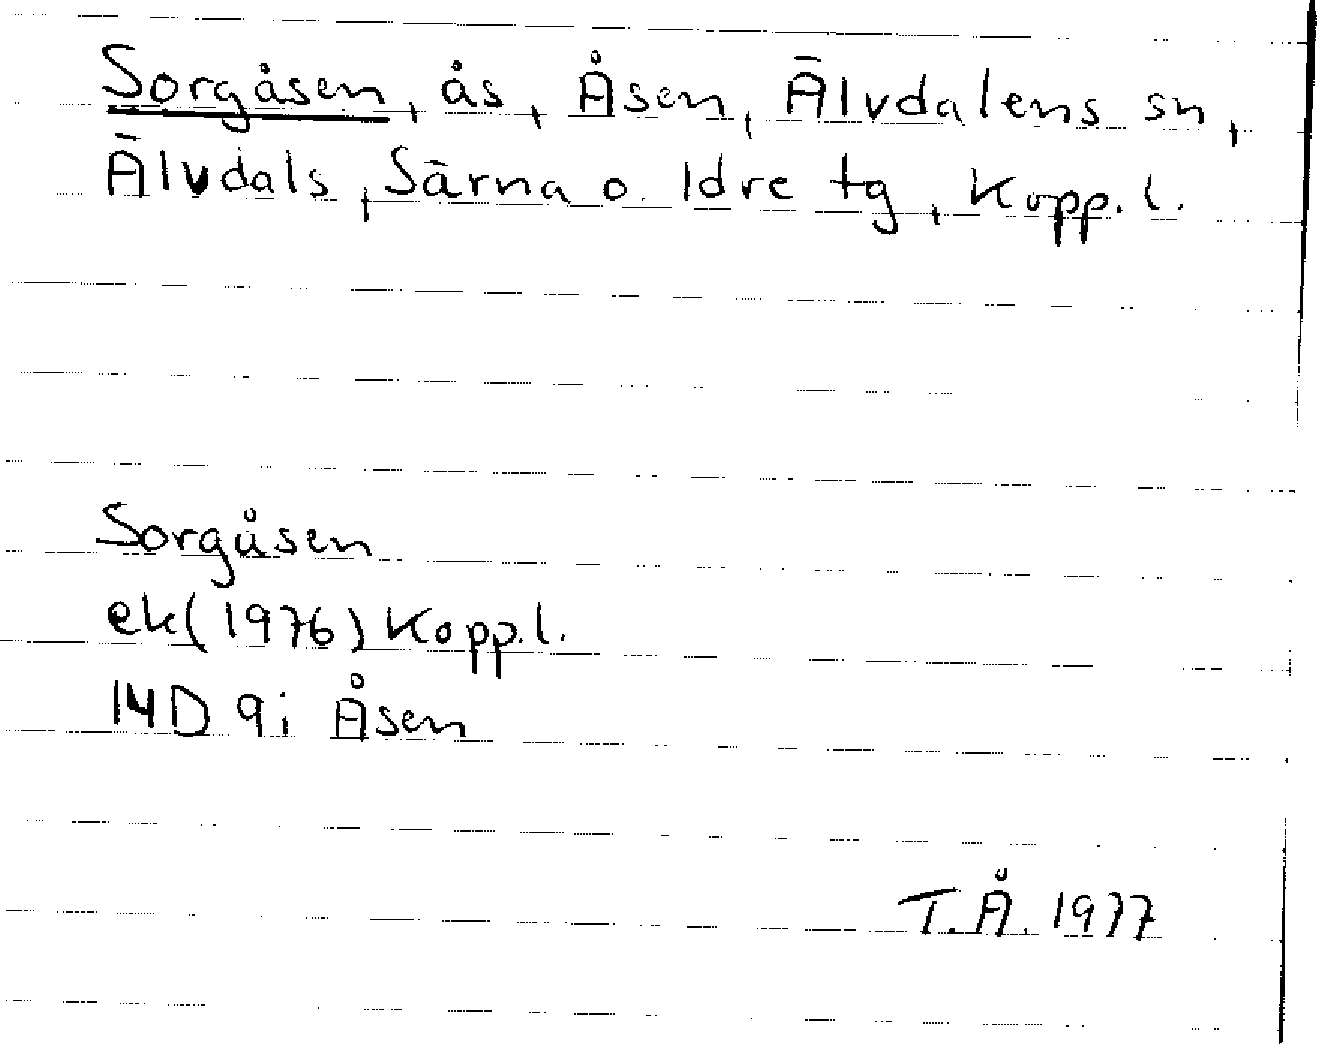 Sorgåsen, ås, Åsen, Älvdalens sn,
Älvdals, Särna o. Idre tg, Kopp. l.
Sorgåsen
ek (1976) Kopp.l.
14D 9i Åsen
T.Å. 1977